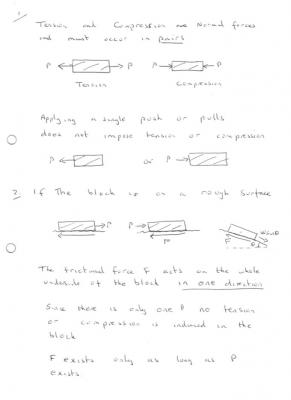 1.
Tension and Compression are Normal forces
and must occur in pairs
P P P P
Tension Compression
Applying a single push or pulls
does not impose tension or compression
P or P
2. If The block is on a rough Surface
P P
F F
The frictional force F acts on the whole
underside of the block in one direction
Since there is only one P no tension
or compression is induced in the
block
F exists only as long as P
exists